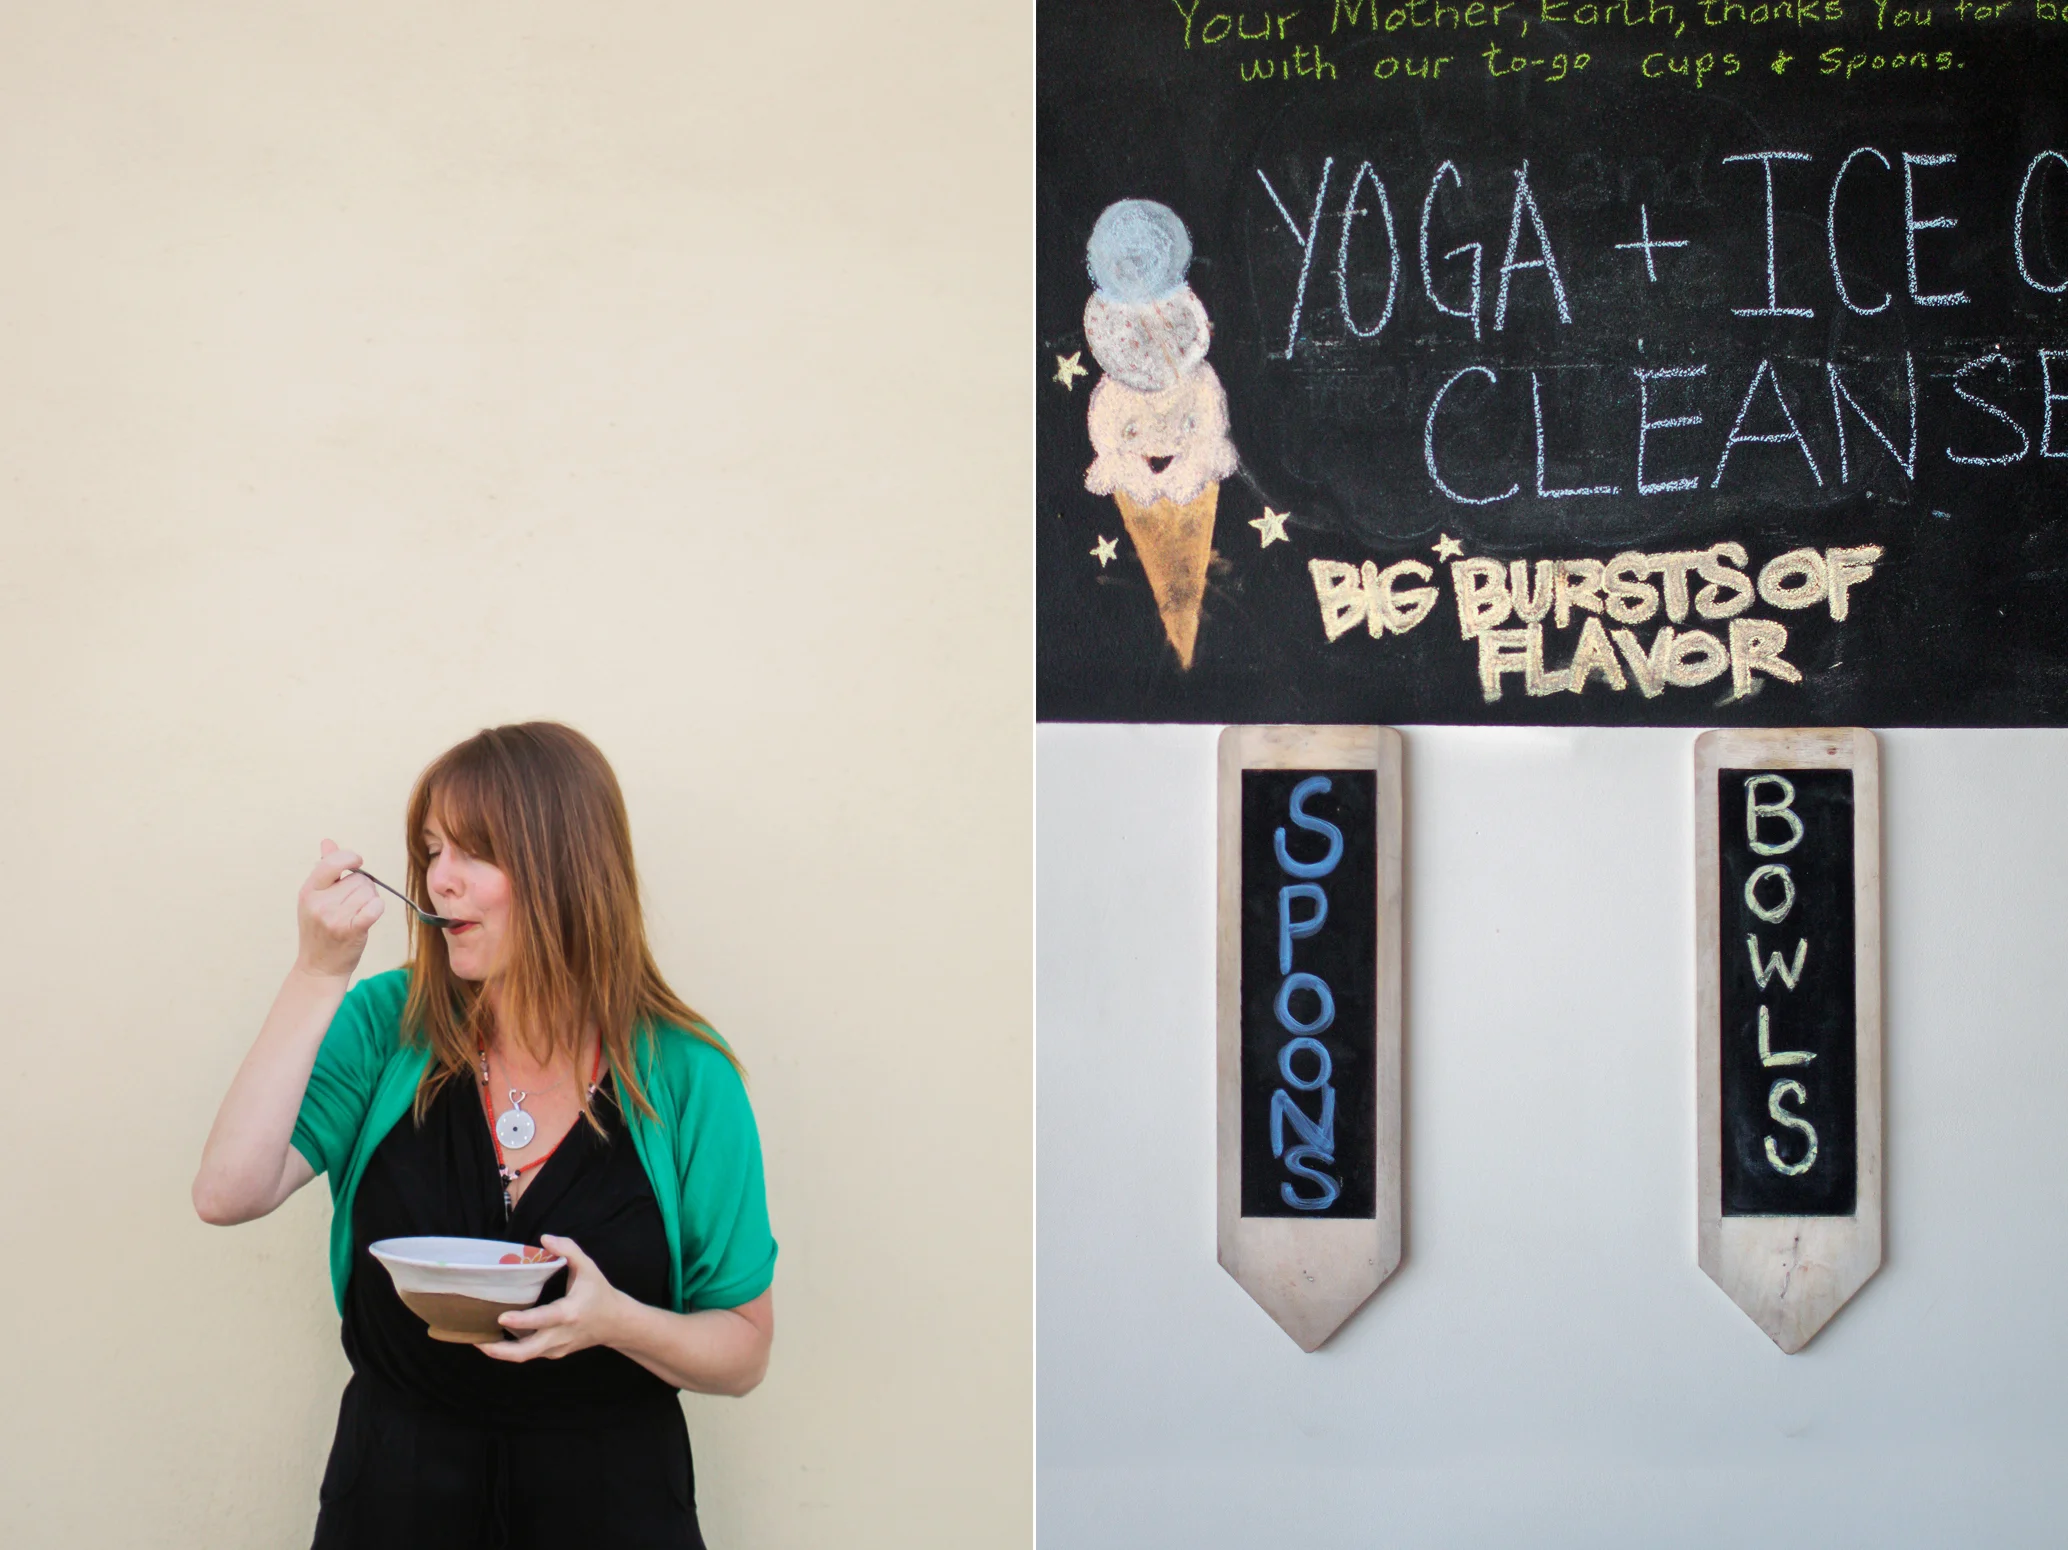 Your Mother, Earth, thanks You for
with our to-go cups & Spoons.
YOGA + ICE C
CLEANSE
BIG BURSTS OF
FLAVOR
SPOONS
BOWLS